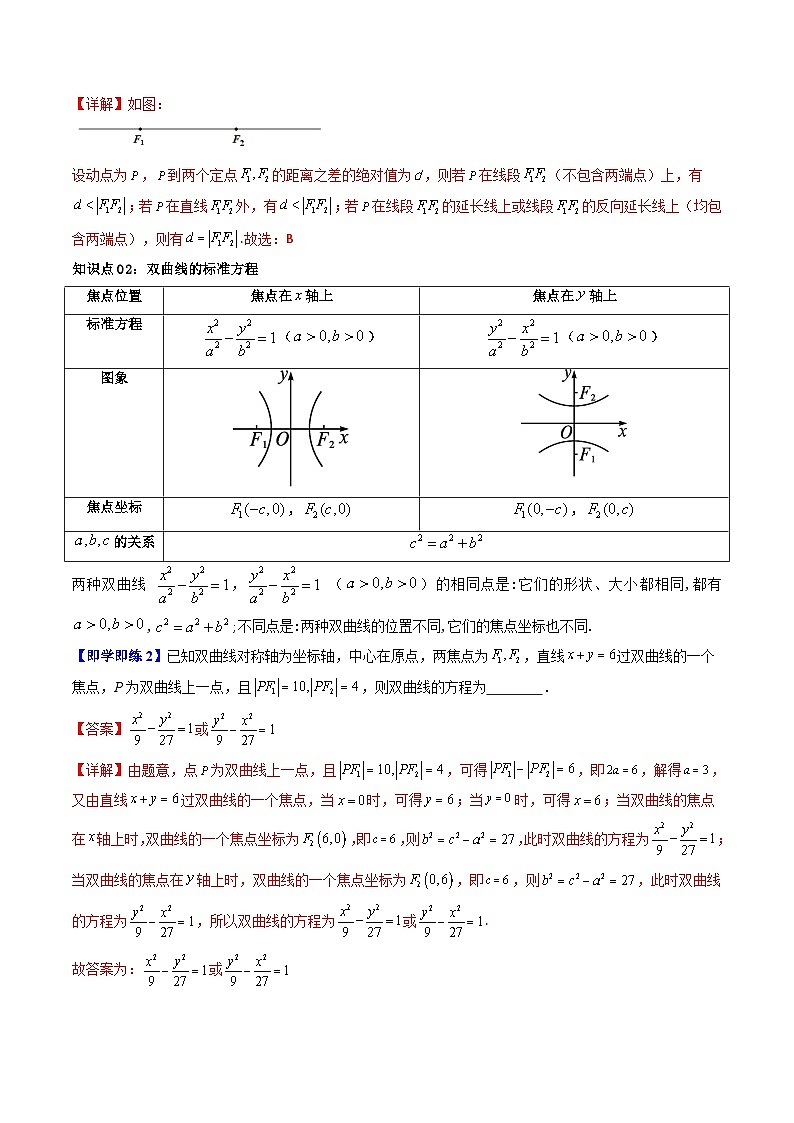 【详解】如图:
F₁ F₂
设动点为P，P到两个定点F₁,F₂的距离之差的绝对值为d，则若P在线段F₁F₂（不包含两端点）上，有
d<|F₁F₂|;若P在直线F₁F₂外，有d<|F₁F₂|;若P在线段F₁F₂的延长线上或线段F₁F₂的反向延长线上（均包
含两端点），则有d=|F₁F₂|.故选：B
知识点02：双曲线的标准方程
焦点位置 焦点在x轴上 焦点在y轴上
标准方程 x²/a²-y²/b²=1（a>0,b>0） y²/a²-x²/b²=1（a>0,b>0）
图象
y F₁ O F₂ x
y F₂ O x F₁
焦点坐标 F₁(-c,0)，F₂(c,0) F₁(0,-c)，F₂(0,c)
a,b,c的关系 c²=a²+b²
两种双曲线 x²/a²-y²/b²=1，y²/a²-x²/b²=1（a>0,b>0）的相同点是:它们的形状、大小都相同,都有
a>0,b>0,c²=a²+b²;不同点是:两种双曲线的位置不同,它们的焦点坐标也不同.
【即学即练2】已知双曲线对称轴为坐标轴，中心在原点，两焦点为F₁,F₂，直线x+y=6过双曲线的一个
焦点，P为双曲线上一点，且|PF₁|=10,|PF₂|=4，则双曲线的方程为________.
【答案】x²/9-y²/27=1或y²/9-x²/27=1
【详解】由题意，点P为双曲线上一点，且|PF₁|=10,|PF₂|=4，可得|PF₁|-|PF₂|=6，即2a=6，解得a=3，
又由直线x+y=6过双曲线的一个焦点，当x=0时，可得y=6；当y=0时，可得x=6；当双曲线的焦点
在x轴上时,双曲线的一个焦点坐标为F₂(6,0),即c=6,则b²=c²-a²=27,此时双曲线的方程为x²/9-y²/27=1；
当双曲线的焦点在y轴上时，双曲线的一个焦点坐标为F₂(0,6)，即c=6，则b²=c²-a²=27，此时双曲线
的方程为y²/9-x²/27=1，所以双曲线的方程为x²/9-y²/27=1或y²/9-x²/27=1.
故答案为：x²/9-y²/27=1或y²/9-x²/27=1